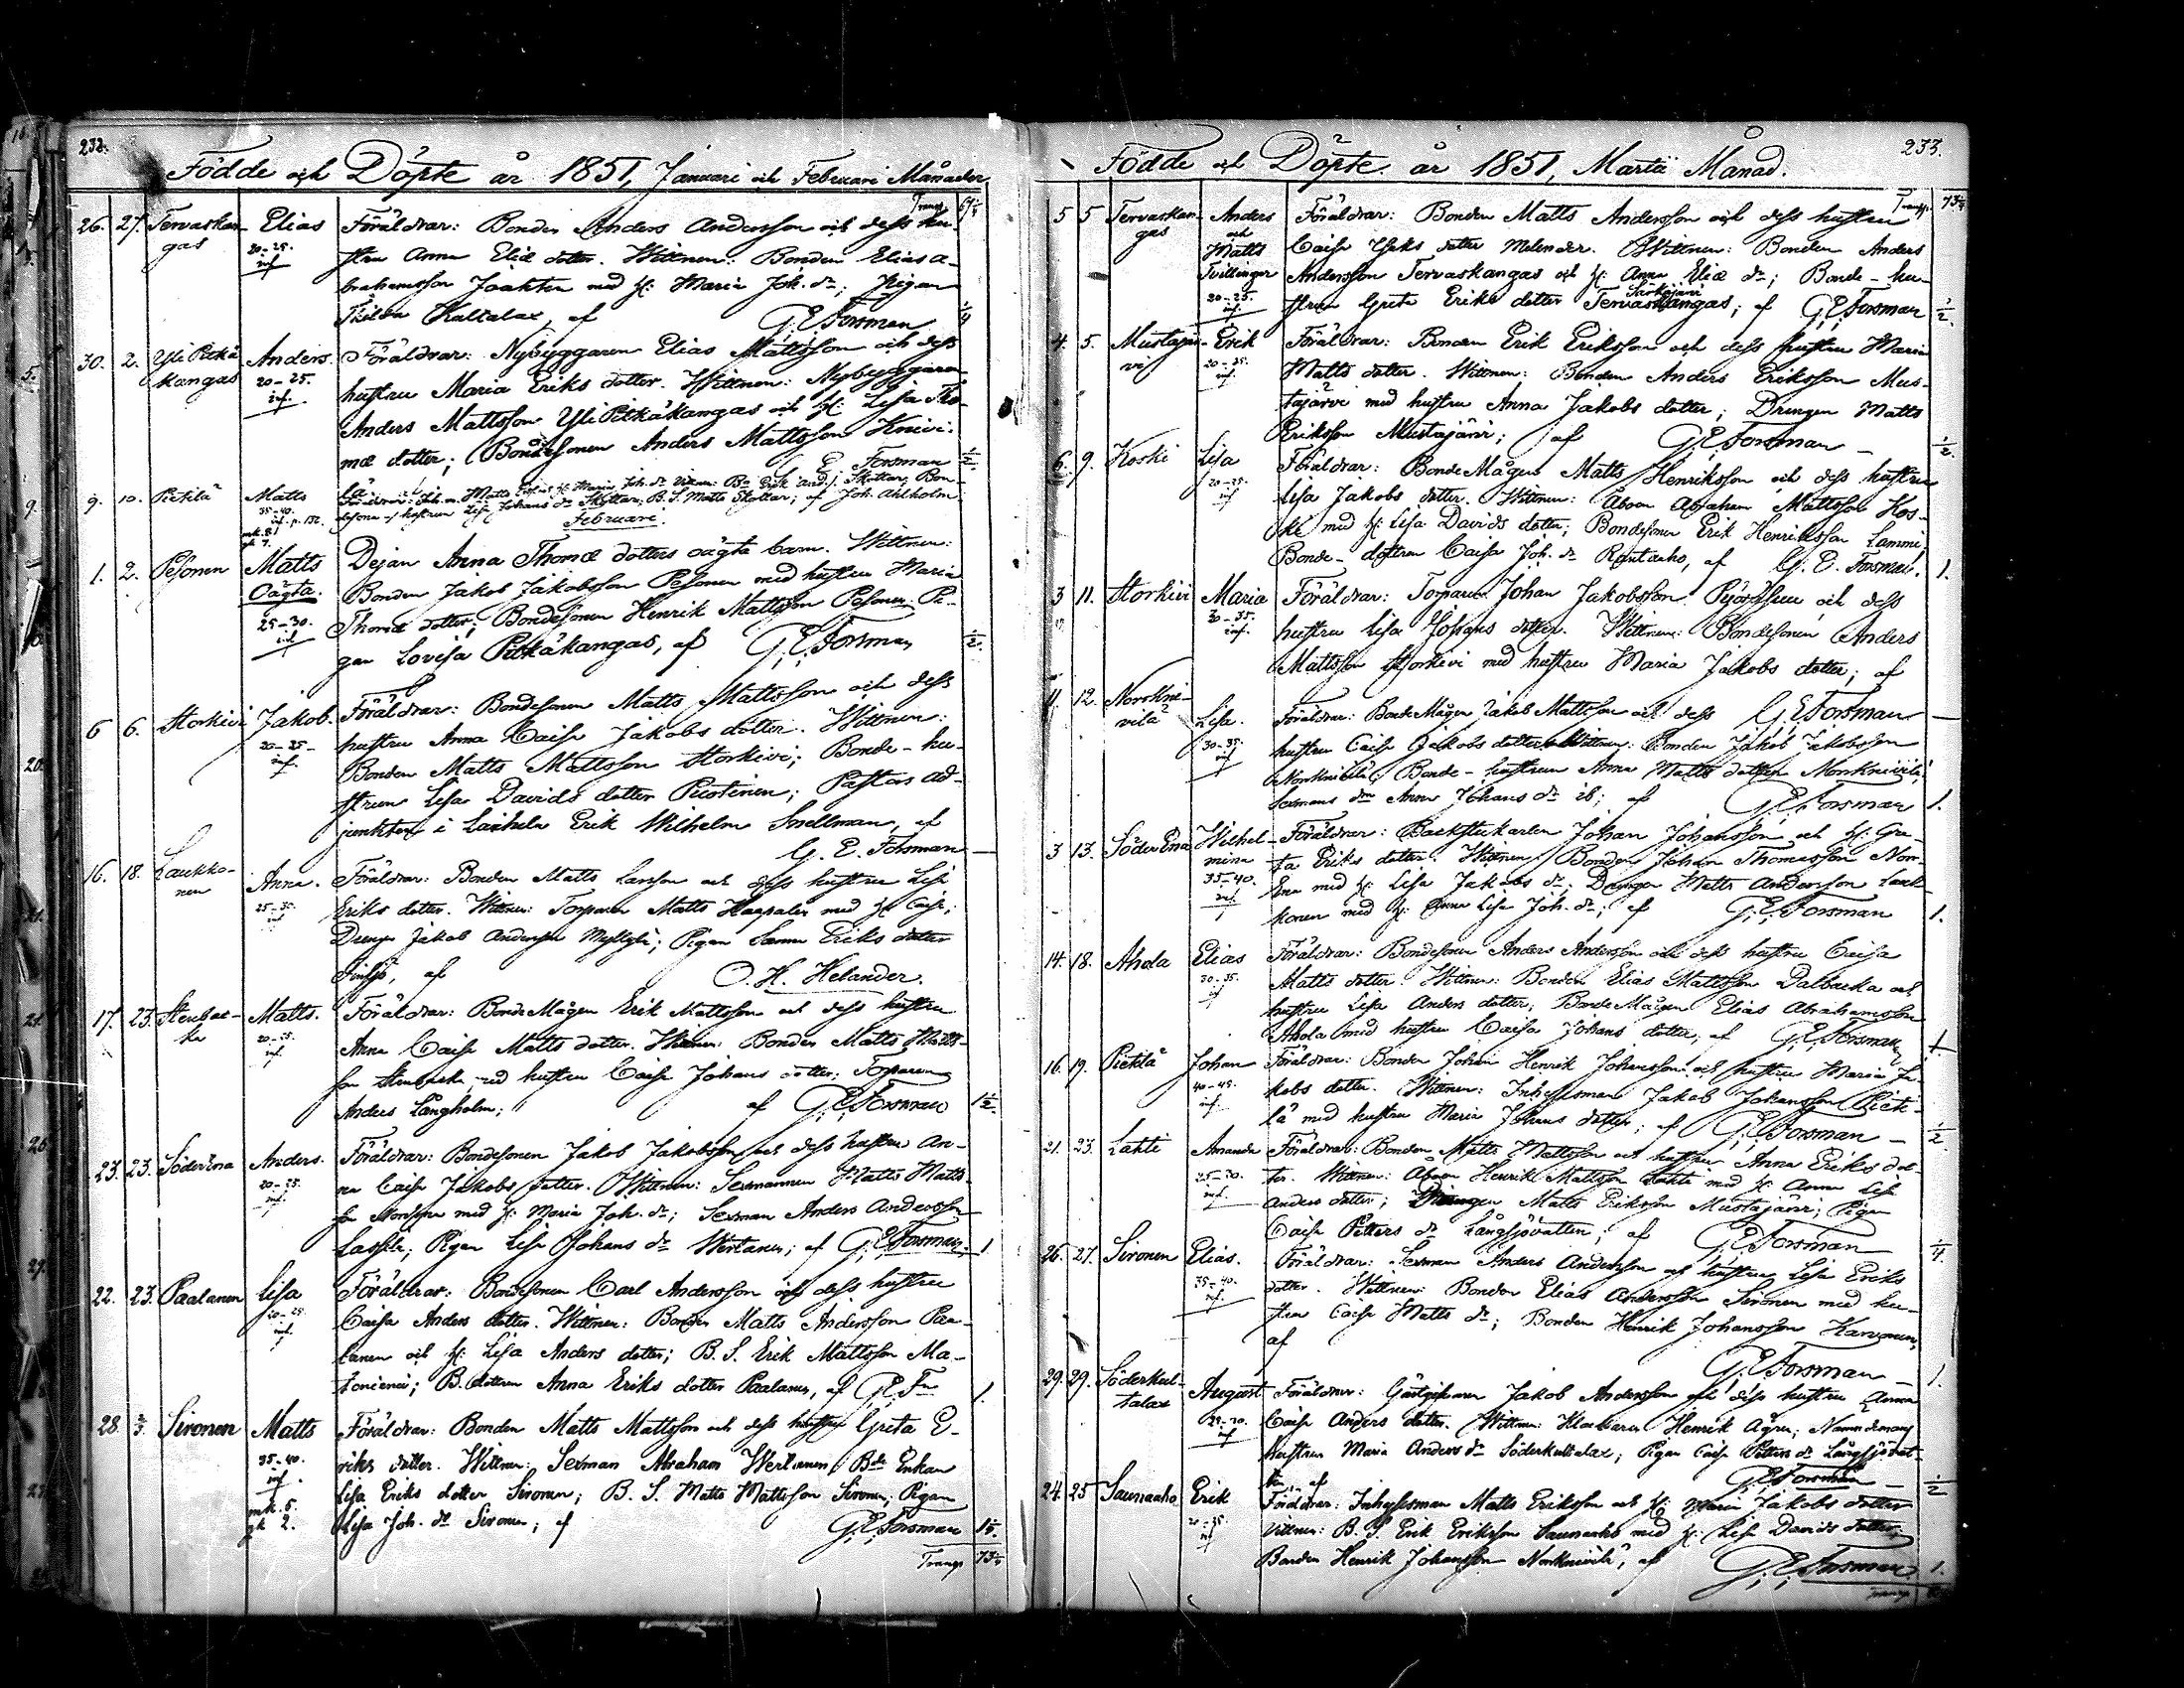 232.
Födde och Döpte år 1851, Januari och Februari Månader
Transp. 69 1/4
26. 27. Tervaskan- Elias Föräldrar: Bonden Anders Andersson och dess hu-
gas 20-25. stru Anna Eliæ dotter. Wittnen: Bonden Elias A-
inf brahamsson Joakten med h: Maria Joh. dr; Pigan
Thilda Kultalax, af G. E. Forsman 1/4
30. 2. Yli Pitkä Anders. Föräldrar: Nybyggaren Elias Mattsson och dess
kangas 20-25. hustru Maria Eriks dotter. Wittnen: Nybyggaren
inf. Anders Mattsson Yli Pitkäkangas och h: Lisa Tho-
mæ dotter; Bondesonen Anders Mattsson Knivi-
lä E. Forsman 1/2
9. 10. Pietilä Matts Föräldrar: Matts h: Maria Joh. dr Erik And. s. Skottar; Bon-
35-40. hustrun Lisa Johans dr Skottar; B. S. Matts Skottar; af Joh. Ahlholm
inf. p. 132.
mk. 8
qk 7. Februari.
1. 2. Pesonen Matts Dejan Anna Thomæ dotters oägta barn. Wittnen:
Oägta. Bonden Jakob Jakobsson Pesonen med hustru Maria
25-30. Thomæ dotter; Bondesonen Henrik Mattsson Pesonen; Pi-
inf gan Lovisa Pitkäkangas, af G. E. Forsman 1/2.
6 6. Storkivi Jakob. Föräldrar: Bondesonen Matts Mattsson och dess
20-25- hustru Anna Caisa Jakobs dotter. Wittnen:
inf. Bonden Matts Mattsson Storkivi; Bonde-hu-
strun Lisa Davids dotter Puotinen; Pastors ad-
junkten i Laihela Erik Wilhelm Snellman, af
G. E. Forsman —
16. 18. Laukko- Anna. Föräldrar: Bonden Matts Larsson och dess hustru Lisa
nen 25-30. Eriks dotter. Wittnen: Torparen Matts Haapala med h: Caisa;
inf Drengen Jakob Andersson Myllylä; Pigan Sanna Eriks dotter
af O. H. Helander.
17. 23. Stenbac- Matts. Föräldrar: BondeMågen Erik Mattsson och dess hustru
ka 20-25. Anna Caisa Matts dotter. Wittnen: Bonden Matts Matts-
inf. son Stenbacka med hustru Caisa Johans dotter; Torparen
Anders Långholm; af G. E. Forsman 1 1/2.
23. 23. Söder Ena Anders. Föräldrar: Bondesonen Jakob Jakobsson och dess hustru An-
20-25. na Caisa Jakobs dotter. Wittnen: Sexmannen Matts Matts-
inf. son med h: Maria Joh. dr; Sexman Anders Andersson
Lassila; Pigan Lisa Johans dr Wertanen; af G. E. Forsman 1
22. 23. Paalanen Lisa Föräldrar: Bondesonen Carl Andersson och dess hustru
20-25. Caisa Anders dotter. Wittnen: Bonden Matts Andersson Paa-
inf. lanen och h: Lisa Anders dotter; B. S. Erik Mattsson Ma-
toniemi; B. dottren Anna Eriks dotter Paalanen, af G. E. Fn 1.
28. 2/3. Sironen Matts Föräldrar: Bonden Matts Mattsson och dess hustru Greta E-
35-40. riks dotter. Wittnen: Sexman Abraham Wertanen; Bde Enkan
inf. Lisa Eriks dotter Sironen; B. S. Matts Mattsson Sironen; Pigan
mk. 6. Lisa Joh. dr Sironen; af G. E. Forsman
qk 2. Transp 73 1/4
233.
Födde och Döpte år 1851, Martii Månad.
Transp. 73 1/4
5 5 Tervaskan- Anders Föräldrar: Bonden Matts Andersson och dess hustru
gas och Caisa Isaks dotter Melender. Wittnen: Bonden Anders
Matts Andersson Tervaskangas och h: Anna Eliæ dr; Bonde-hu-
Tvillingar Särkijärvi
20-25. strun Greta Eriks dotter Tervaskangas; af G. E. Forsman 1/2.
inf.
4. 5. Mustajär- Erik Föräldrar: Bonden Erik Eriksson och dess hustru Maria
vi 20-25. Matts dotter. Wittnen: Bonden Anders Eriksson Mus-
inf. tajärvi med hustru Anna Jakobs dotter; Drengen Matts
Eriksson Mustajärvi; af G. E. Forsman — 1/2.
6. 9. Koski Lisa Föräldrar: BondeMågen Matts Henriksson och dess hustru
20-25. Lisa Jakobs dotter. Wittnen: Åboen Abraham Mattsson Kos-
inf ki med h: Lisa Davids dotter; Bondesonen Erik Henriksson Lammi
Bonde-dottren Caisa Joh. dr Rantaaho, af G. E. Forsman. 1.
3 11. Storkivi Maria Föräldrar: Torparen Johan Jakobsson och dess
30-35. hustru Lisa Johans dotter. Wittnen: Bondesonen Anders
inf. Mattsson Storkivi med hustru Maria Jakobs dotter; af
G. E. Forsman —
11. 12. Norrkni- Lisa. Föräldrar: BondeMågen Jakob Mattsson och dess
vilä 30-35. hustru Caisa Jakobs dotter. Wittnen: Bonden Jakob Jakobsson
inf Norrknivilä; Bonde-hustrun Anna Matts dotter Norrknivilä;
Sexmans Anna Johans dr ib; af G. E. Forsman 1.
3 13. Söder Ena Wilhel- Föräldrar: Backstukarlen Johan Johansson och h: Gre-
mina ta Eriks dotter. Wittnen: Bonden Johan Thomasson Norr-
35-40. Ena med h: Lisa Jakobs dr; Drengen Matts Andersson Lauk-
inf konen med h: Anna Lisa Joh. dr; af G. E. Forsman 1.
14. 18. Ahola Elias Föräldrar: Bondesonen Anders Andersson och dess hustru Caisa
30-35. Matts dotter. Wittnen: Bonden Elias Mattsson Dalbacka och
inf hustru Lisa Anders dotter; BondeMågen Elias Abrahamsson
Ahola med hustru Caisa Johans dotter, af G. E. Forsman 1
16. 19. Pietilä Johan Föräldrar: Bonden Johan Henrik Johansson och hustru Maria Ja-
40-45. kobs dotter. Wittnen: Inhysesman Jakob Johansson Pieti-
inf. lä med hustru Maria Johans dotter; af G. E. Forsman — 1/2
21. 23. Lahti Amanda Föräldrar: Bonden Matts Mattsson och hustru Anna Eriks dot-
25-30. ter. Wittnen: Åboen Henrik Mattsson Lahti med h: Anna Lisa
inf. Anders dotter; Drengen Matts Eriksson Mustajärvi; Pigan
Caisa Petters dr Långsjövatten; af G. E. Forsman 1/4.
26. 27. Sironen Elias. Föräldrar: Sexman Anders Andersson och hustru Lisa Eriks
35-40. dotter. Wittnen: Bonden Elias Andersson Sironen med hu-
inf. stru Caisa Matts dr; Bonden Henrik Johansson
af
G. E. Forsman — 1.
29. 29. Söderkul- August Föräldrar: Gästgifvaren Jakob Andersson och dess hustru Anna
talax 25-30. Caisa Anders dotter. Wittnen: Klockaren Henrik Ågren; Nämndemans
inf hustrun Maria Anders dr Söderkultalax; Pigan Caisa Petters dr Långsjövat-
ten, af G. E. Forsman — 1/2
24. 25 Saunaaho Erik Föräldrar: Inhysesman Matts Eriksson och h: Maria Jakobs dotter
inf. Vittnen: B. S. Erik Eriksson Saunaaho med h: Lisa Davids dotter;
Bonden Henrik Johansson Norrknivilä, af G. E. Forsman. 1.
Transp